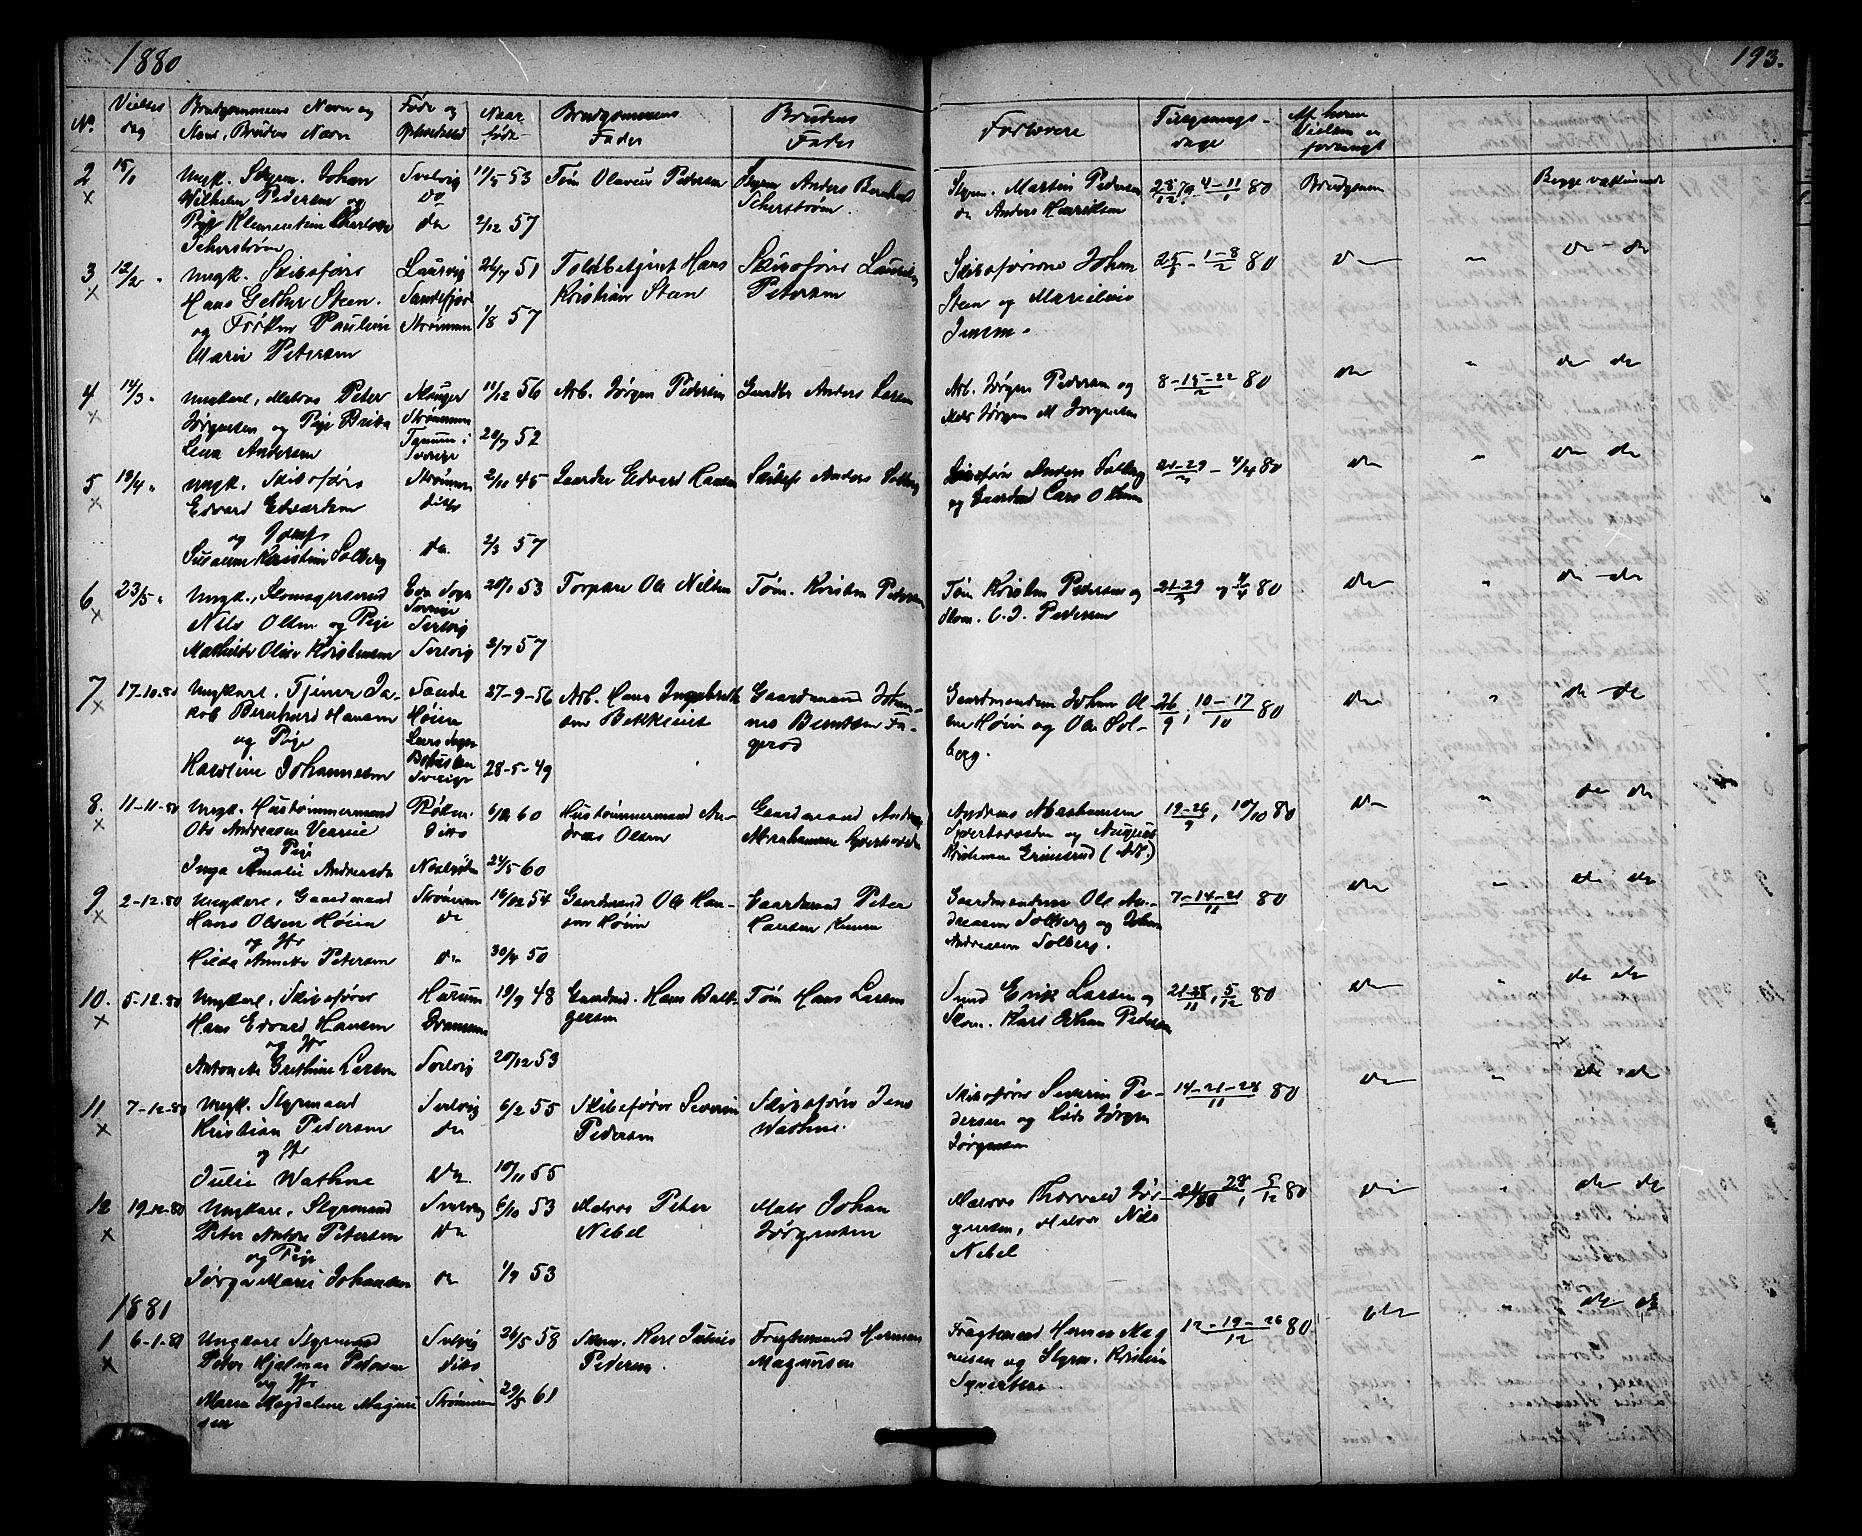 1880
193.
No.
Vielses dag
Brudgommens Navn og
Navn, Brudens Navn
Føde og
Opholdssted
Naar
født
Brudgommens
Fader
Brudens
Fader
Forlovere
Tillysnings-
dage
Af hvem
Vielsen er
forlangt
2
18/1
Ungk. Styrm. Johan
Wilhelm Pedersen og
Pige Klementine Charlotte
Svelvig
do
do
11/5 53
2/12 57
Tøm Olaves Pedersen
Anders Bernhard
Styrm. Martin Pedersen
do Anders Henriksen
28/12 79 4-11/1 80
Brudgommen
Begge vaccinerede
3
12/2
Ungk. Skibsfører
Hans Gether Steen
og Frøken Pauline
Marie Petersen
Laurvig
Sandefjord
Strømmen
26/7 51
1/8 57
Toldbetjent Hans
Kristian Steen
Skibsfører
Petersen
Skibsførerne Johan
Steen og
Jensen
25/1 - 1-8/2 80
do
"
do - do
4
14/3
Ungkarl, Matros Peter
Jørgensen og Pige Brita
Lena Andersen
Strømmen
Sverige
11/12 56
20/7 52
Arb. Jørgen Pedersen
Gaardbr Anders Larsen
Arb. Jørgen Pedersen og
Mats Jørgen M Jørgensen
8-15-22/2 80
do
"
do do
5
18/4
Ungk. Skibsfører
Edvard Edvardsen
og Jomf.
Susanne Kristine Solberg
Strømmen
ditto
do.
2/10 45
2/3 57
Gaardbr Edvard Hansen
Skibsf Anders Solberg
Skibsfører Anders Solberg
og Gaardmd Lars Olsen
21-29/3 - 4/4 80
do
"
do do
6
23/5
Ungk., Skomagersvend
Nils Olsen og Pige
Mathilde Oline Kristensen
Sverige
Svelvig
Svelvig
20/1 53
2/7 57
Torpare Ole Nilsen
Tøm. Kristen Pedersen
Tøm Kristen Pedersen og
Skom. C. J. Pedersen
21-29/3 og 4/4 80
do
"
do - do
7
17-10-80
Ungkarl, Tjener Ja-
kob Bernhard Hansen
og Pige
Karoline Johannesen
Sande
Høien
Sverige
27-9-56
28-5-49
Arb. Hans Ingebreth
sen Bekkevet
Gaardmand Johan-
nes Berntsen Fa-
gerød
Gaardmændene Johan Ol
sen Høien og Ole Sol-
berg.
26/9, 10-17/10 80
do
"
do do
8.
11-11-80
Ungk. Hustømmermand
Ole Andreasen
og Pige
Inga Amalie Andreasdr
Røken
Ditto
60
24/5 60
Hustømmermand An-
dreas Olsen
Gaardmand Andreas
Abrahamsen
Andreas Abrahamsen
og August
Kristensen Grimsrud
19-26/9, 10/10 80
do
"
do do
9
2-12-80
Ungkarl, Gaardmand
Hans Olsen Høien
og Jfr
Hilda Annette Petersen
Strømmen
do
do
54
30/4 50
Gaardmand Ole Han-
sen Høien
Gaardmand Peter
Hansen
Gaardmændene Ole An-
dreasen Solberg og Johan
Andreasen Solberg.
7-14-21/11 80
do
"
do do
10.
5-12-80
Ungkarl, Skibsfører
Hans Edvard Hansen
og Jfr
Antonette Grethine Larsen
Hurum
Drammen
Svelvig
19/9 48
20/12 53
Gaardmd. Hans Balt-
gersen
Tøm Hans Larsen
Smed Erik Larsen og
Skom. Karl Johan Pedersen
21-28/11, 5/12 80
do
"
do do
11
7-12-80
Ungk. Styrmand
Kristian Pedersen
og Jfr
Julie Wathne
Svelvig
do
do
6/2 55
10/11 55
Skibsfører Severin
Pedersen
Skibsfører Jens
Wathne.
Skibsfører Severin Pe-
dersen og Lods Jørgen
Jørgensen
14-21-28/11 80
do
"
do do
12
19-12-80
Ungkarl, Styrmand
Peter Anton Petersen
og Pige
Jørga Marie Johansen
Svelvig
do
do
6/10 53
1/9 53
Matros Peter
Nebel
Mats Johan
Jørgensen
Matros Thorvald Jør-
gensen, Matros Nils
Nebel
28, 5/12 80
do
"
do do
1881
1
6-1-81
Ungkarl Styrmand
Peter Hjalmar Pedersen
og Jfr
Maren Magdalene Magnu
sen
Svelvig
ditto
Strømmen
26/5 58
29/5 61
Karl Julius
Pedersen
Fragtemand Herman
Magnusen
Fragtemand Herman Mag
nusen og Styrm. Kristian
12-19-26/12 80
do
"
do do